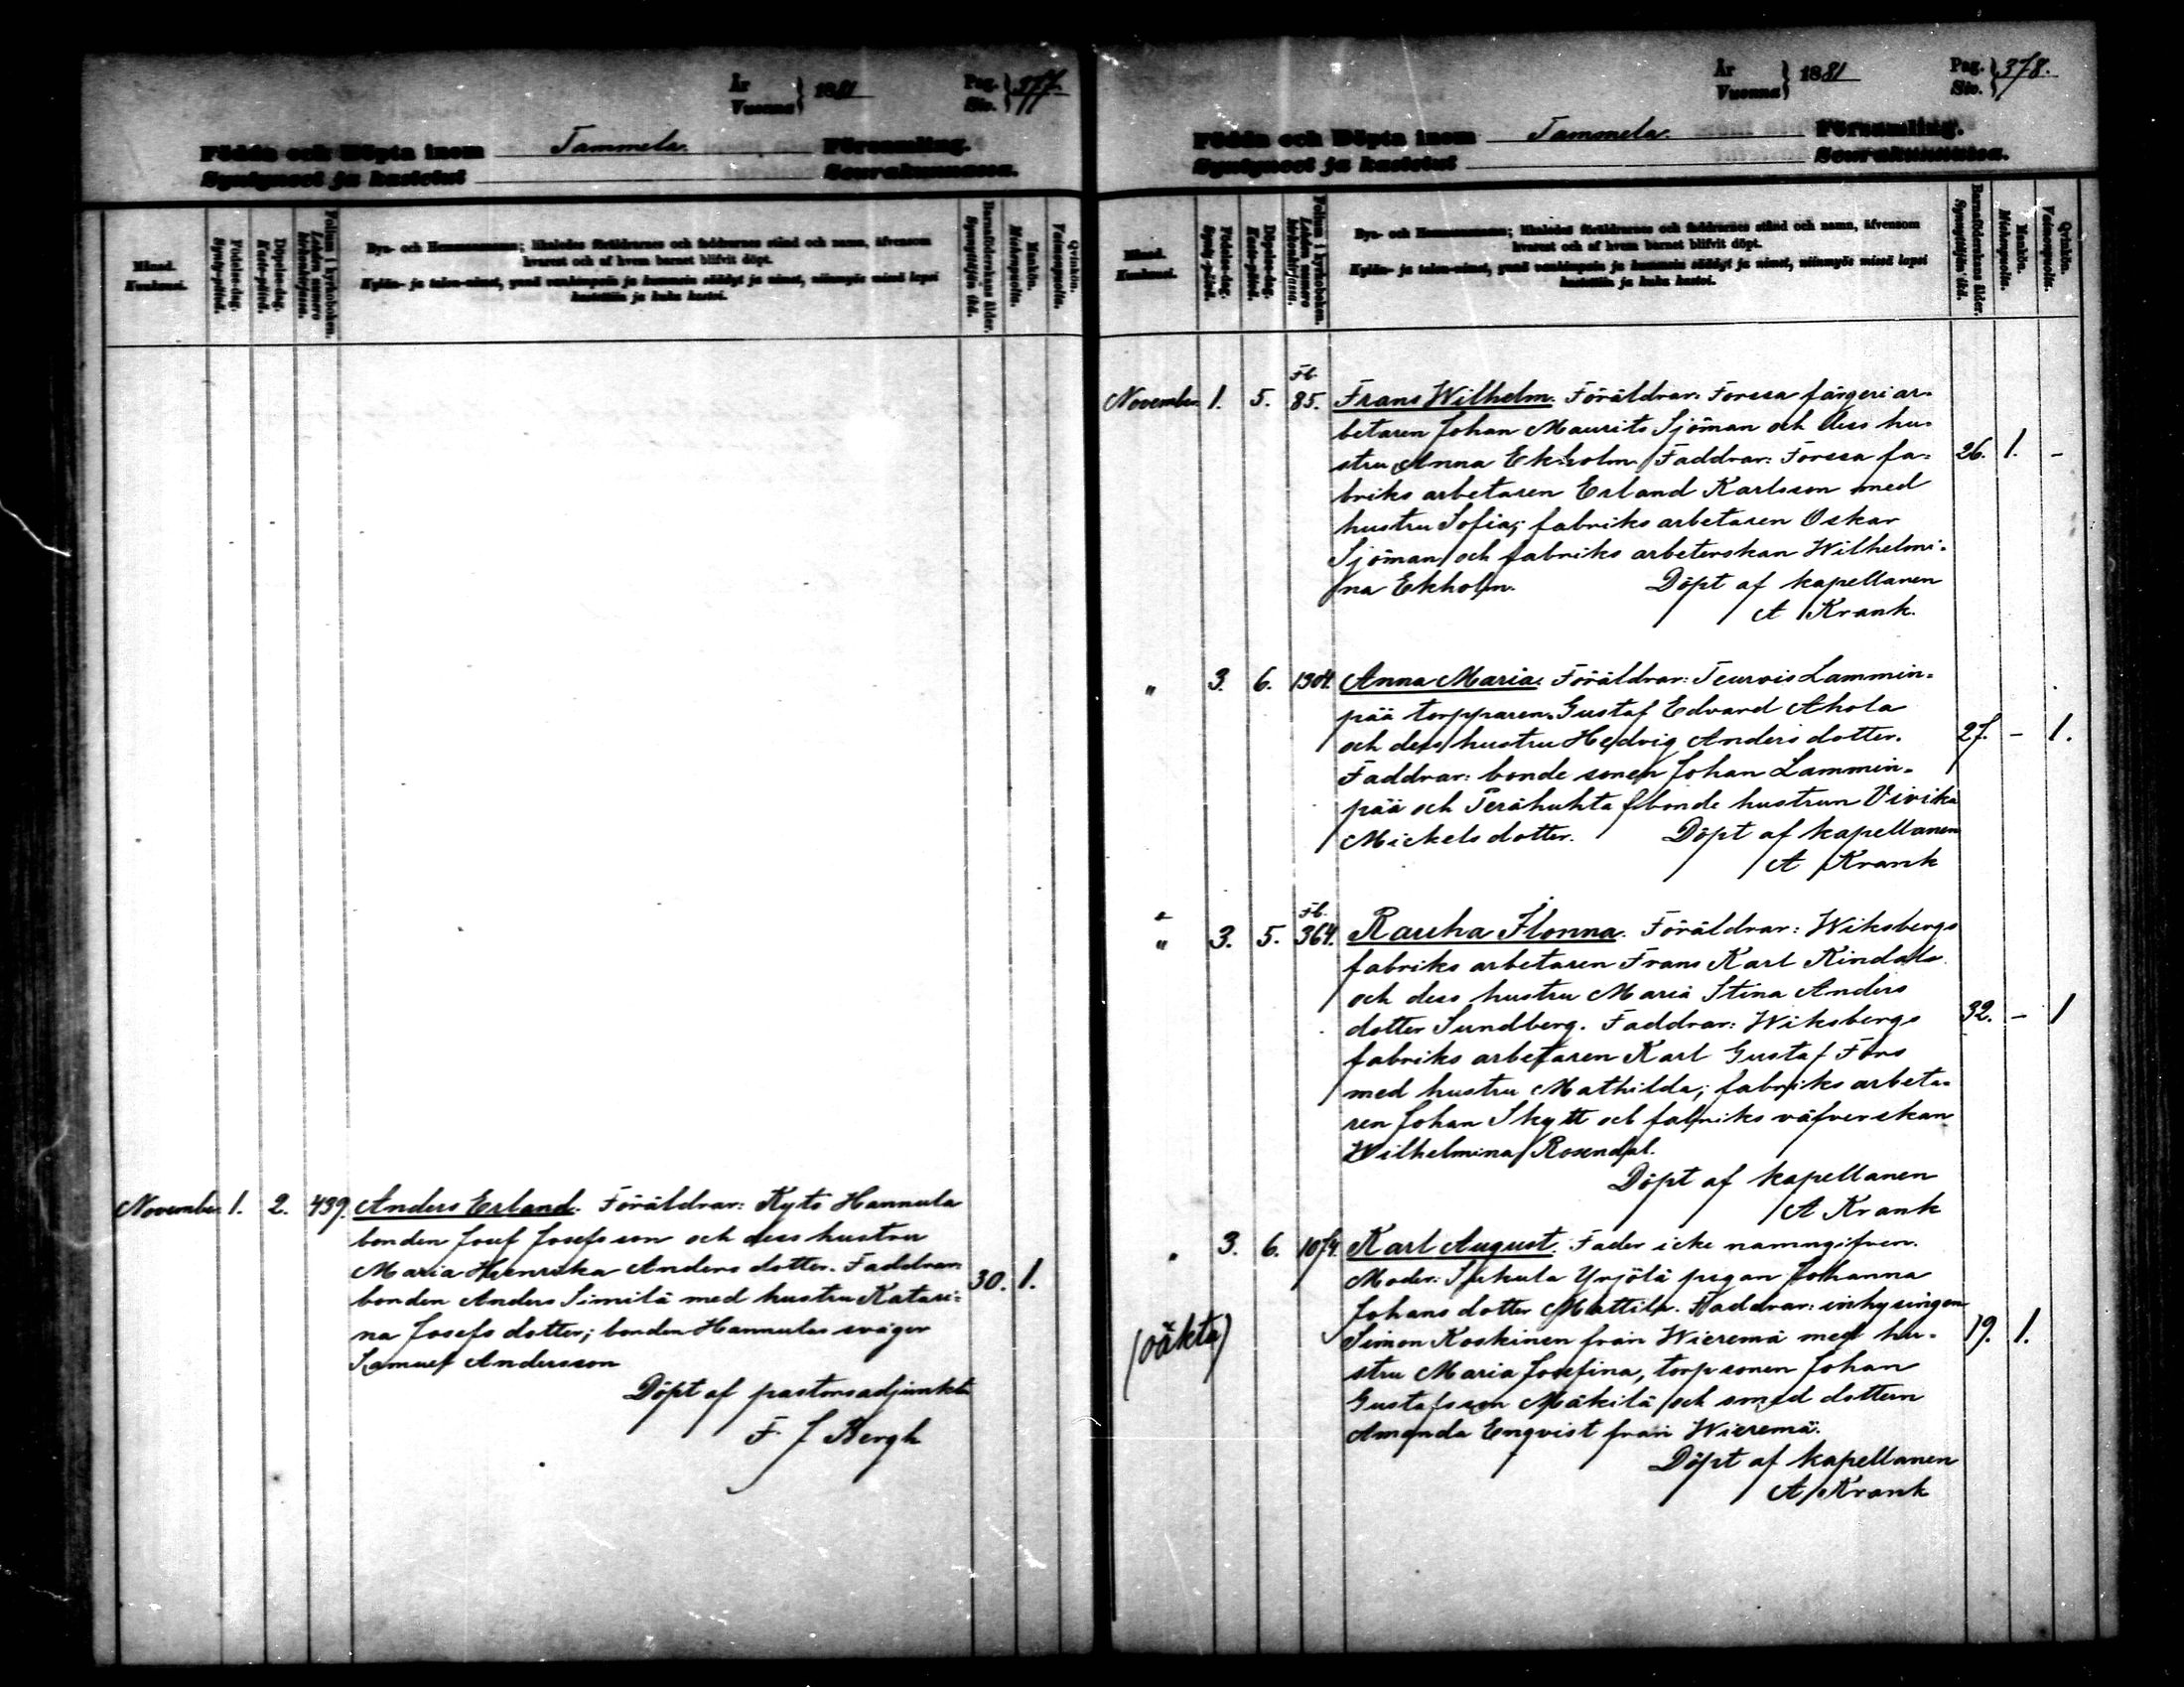 År
Vuonna
1881
Pag.
Siv.
377.
Födda och Döpta inom Tammela Församling.
Syntyneet ja kastetut Seurakunnassa.
Månad.
Kuukausi.
Födelse-dag.
Synty-päivä.
Döpelse-dag.
Kaste-päivä.
Folium i kyrkoboken.
Lehden numero kirkonkirjassa.
Bya- och Hemmansnamn; likaledes föräldrarnes och faddrarnes stånd och namn, äfvensom
hvarest och af hvem barnet blifvit döpt.
Kylän- ja talon-nimet, ynnä vanhempain ja kummein säädyt ja nimet, niinmyös missä lapsi
kastettiin ja kuka kastoi.
Barnaföderskans ålder.
Synnyttäjän ikä.
Mankön.
Miehenpuolia.
Qvinkön.
Vaimonpuolia.
November 1. 2. 439. Anders Erland. Föräldrar: Kyto Hannula
bonden Josef Josefsson och dess hustru
Maria Henrika Anders dotter. Faddrar:
bonden Anders Simila med hustru Katari= 30. 1.
na Josefs dotter; bonden Hannulas svåger
Samuel Andersson
Döpt af pastorsadjunkten
F. J Bergh
År
Vuonna
1881
Pag.
Siv.
378.
Födda och Döpta inom Tammela. Församling.
Syntyneet ja kastetut Seurakunnassa.
Månad.
Kuukausi.
Födelse-dag.
Synty-päivä.
Döpelse-dag.
Kaste-päivä.
Folium i kyrkoboken.
Lehden numero kirkonkirjassa.
Bya- och Hemmansnamn; likaledes föräldrarnes och faddrarnes stånd och namn, äfvensom
hvarest och af hvem barnet blifvit döpt.
Kylän- ja talon-nimet, ynnä vanhempain ja kummein säädyt ja nimet, niinmyös missä lapsi
kastettiin ja kuka kastoi.
Barnaföderskans ålder.
Synnyttäjän ikä.
Mankön.
Miehenpuolia.
Qvinkön.
Vaimonpuolia.
Fb.
November 1. 5. 85. Frans Wilhelm. Föräldrar: Forssa färgeriar=
betaren Johan Maurits Sjöman och dess hu=
stru Anna Ekholm. Faddrar: Forssa fa= 26. 1. -
briks arbetaren Erland Karlsson med
hustru Sofia; fabriks arbetaren Oskar
Sjöman och fabriks arbeterskan Wilhelmi=
na Ekholm. Döpt af kapellanen
A Krank.
" 3. 6. 1304. Anna Maria. Föräldrar: Teurois Lammin=
pää torpparen Gustaf Edvard Ahola
och dess hustru Hedvig Anders dotter. 27. - 1.
Faddrar: bonde sonen Johan Lammin=
pää och Terähuhta bonde hustrun Vivika
Mickels dotter. Döpt af kapellanen
A Krank
Fb.
" 3. 5. 364. Rauha Ilonna. Föräldrar: Wiksbergs
fabriks arbetaren Frans Karl Kindals
och dess hustru Maria Stina Anders
dotter Sundberg. Faddrar: Wiksbergs 32. - 1
fabriks arbetaren Karl Gustaf Fors
med hustru Mathilda; fabriks arbeta=
ren Johan Skytt och fabriks väfverskan
Wilhelmina Rosendal.
Döpt af kapellanen
A Krank
" 3. 6. 1074. Karl August. Fader icke namngifven.
Moder: Sukula Yrjölä pigan Johanna
Johans dotter Mattila. Faddrar: inhysingen
(oäkta) Simon Koskinen från Wieremä med hu= 19. 1.
stru Maria Josefina, torp sonen Johan
Gustafsson Mäkilä och smed dottern
Amanda Enqvist från Wieremä.
Döpt af kapellanen
A Krank